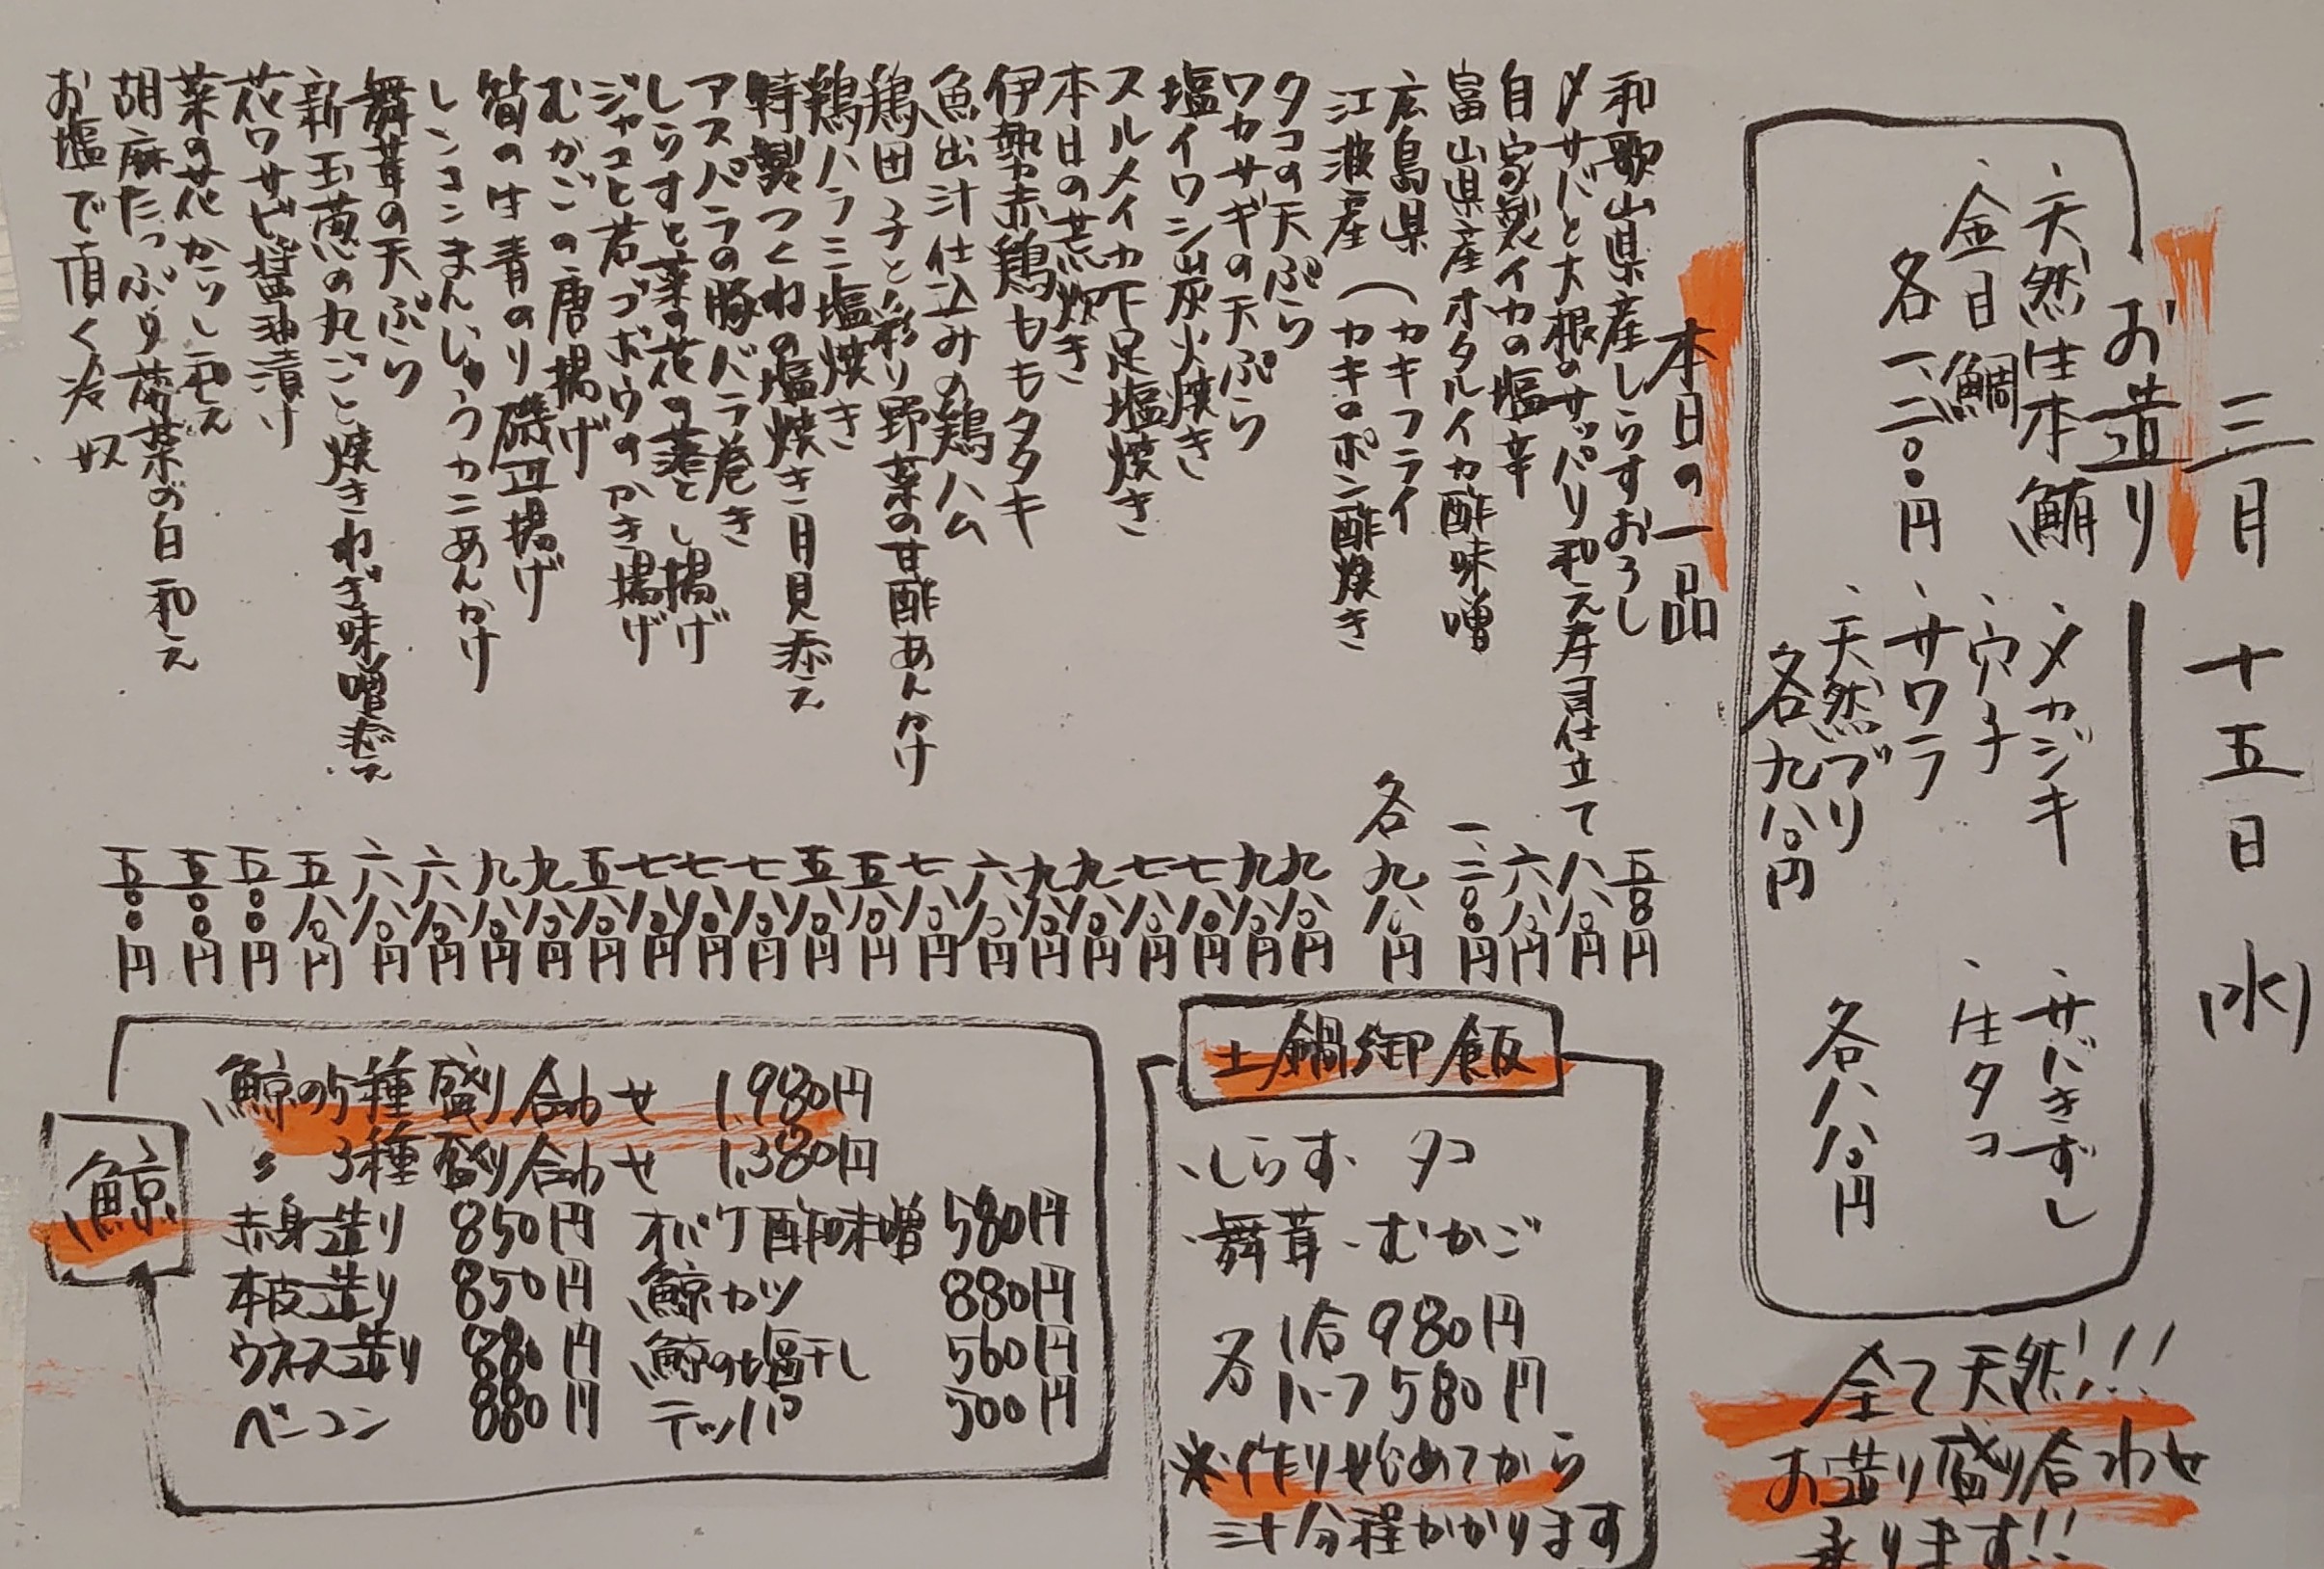 三月十五日(水)
お造り
、天然生本鮪
、金目鯛
各一、二〇〇円
、メカジキ
、穴子
、サワラ
、天然ブリ
各九八〇円
、サバきずし
、生タコ
各八八〇円
全て天然!!!
お造り盛り合わせ
承ります!!
本日の一品
和歌山県産しらすおろし 五八〇円
〆サバと大根のサッパリ和え寿司仕立て 八八〇円
自家製イカの塩辛 六八〇円
富山県産ホタルイカ酢味噌 一、二〇〇円
広島県
江波産
(カキフライ
カキのポン酢焼き
各九八〇円
タコの天ぷら 九八〇円
ワカサギの天ぷら 九八〇円
塩イワシ炭火焼き 七八〇円
スルメイカ下足塩焼き 七八〇円
本日の荒炊き 九八〇円
伊勢赤鶏ももタタキ 九八〇円
魚出汁仕込みの鶏ハム 六八〇円
鶏団子と彩り野菜の甘酢あんかけ 七八〇円
鶏ハラミ塩焼き 五八〇円
特製つくねの塩焼き月見添え 五八〇円
アスパラの豚バラ巻き 七八〇円
しらすと菜の花の落とし揚げ 七八〇円
ジャコと若ゴボウのかき揚げ 七八〇円
むかごの唐揚げ 五八〇円
筍の生青のり磯辺揚げ 九八〇円
レンコンまんじゅうカニあんかけ 九八〇円
舞茸の天ぷら 六八〇円
新玉葱の丸ごと焼きねぎ味噌添え 六八〇円
花ワサビ醤油漬け 五八〇円
菜の花からし和え 五〇〇円
胡麻たっぷり菊菜の白和え 五〇〇円
お塩で頂く冷奴 五〇〇円
土鍋御飯
、しらす、タコ
、舞茸、むかご
各 1合 980円
ハーフ 580円
※作り始めてから
三十分程かかります
鯨
鯨の5種盛り合わせ 1,980円
〃 3種盛り合わせ 1,380円
赤身造り 850円
本皮造り 850円
ウネス造り 880円
ベーコン 880円
オバケ酢味噌 580円
鯨カツ 880円
鯨の塩干し 560円
テッパ 500円